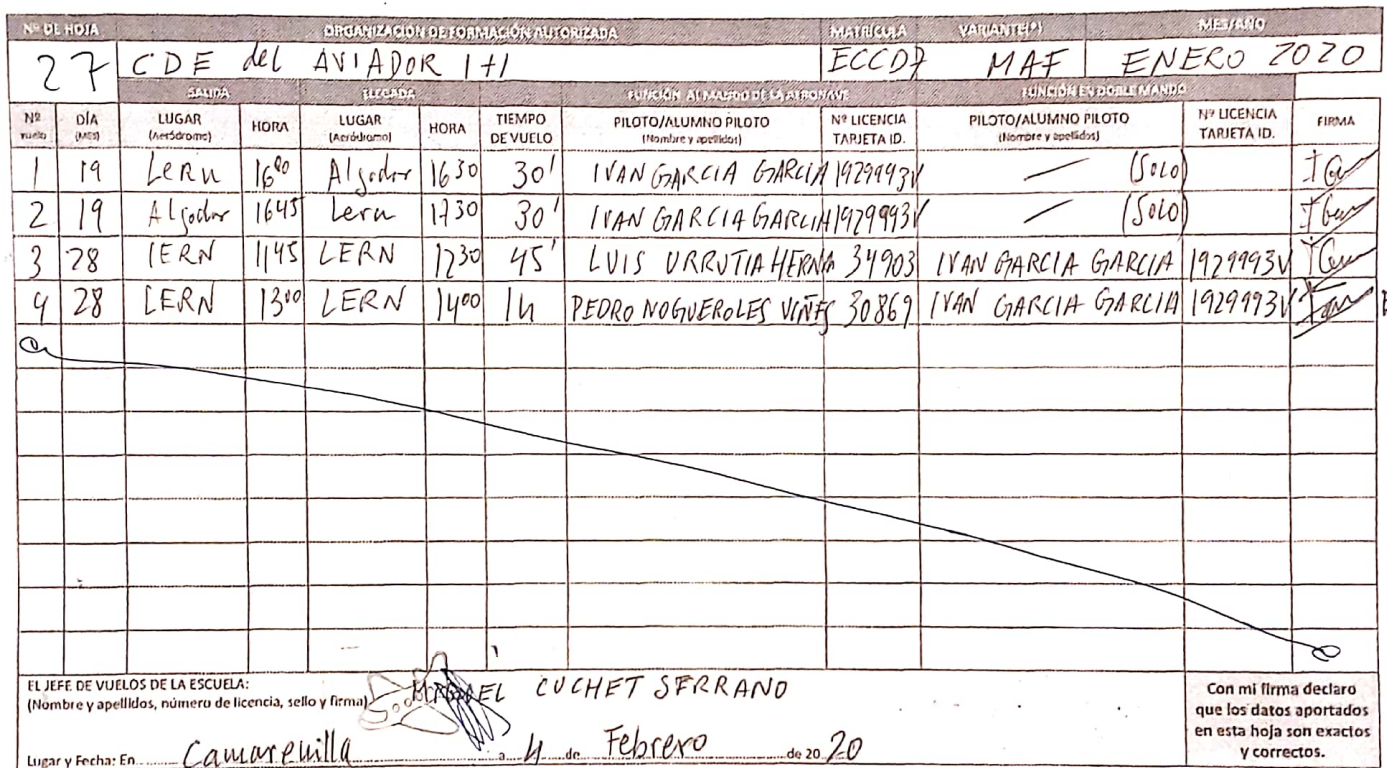 Nº DE HOJA ORGANIZACIÓN DE FORMACIÓN AUTORIZADA MATRÍCULA VARIANTE(*) MES/AÑO
27 CDE del AVIADOR 1+1 ECCD7 MAF ENERO 2020
SALIDA LLEGADA FUNCIÓN AL MANDO DE LA AERONAVE FUNCIÓN EN DOBLE MANDO
Nº vuelo DÍA (MES) LUGAR (Aeródromo) HORA LUGAR (Aeródromo) HORA TIEMPO DE VUELO PILOTO/ALUMNO PILOTO (Nombre y apellidos) Nº LICENCIA TARJETA ID. PILOTO/ALUMNO PILOTO (Nombre y apellidos) Nº LICENCIA TARJETA ID. FIRMA
1 19 Lern 1600 Algodor 1630 30' IVAN GARCIA GARCIA 1929993V — (SOLO)
2 19 Algodor 1645 Lern 1730 30' IVAN GARCIA GARCIA 1929993V — (SOLO)
3 28 LERN 1145 LERN 1230 45' LUIS URRUTIA HERNA 34903 IVAN GARCIA GARCIA 1929993V
4 28 LERN 1300 LERN 1400 1h PEDRO NOGUEROLES VIÑES 30869 IVAN GARCIA GARCIA 1929993V
EL JEFE DE VUELOS DE LA ESCUELA:
(Nombre y apellidos, número de licencia, sello y firma) CUCHET SERRANO
Lugar y Fecha: En Camarenilla a 4 de Febrero de 2020
Con mi firma declaro
que los datos aportados
en esta hoja son exactos
y correctos.